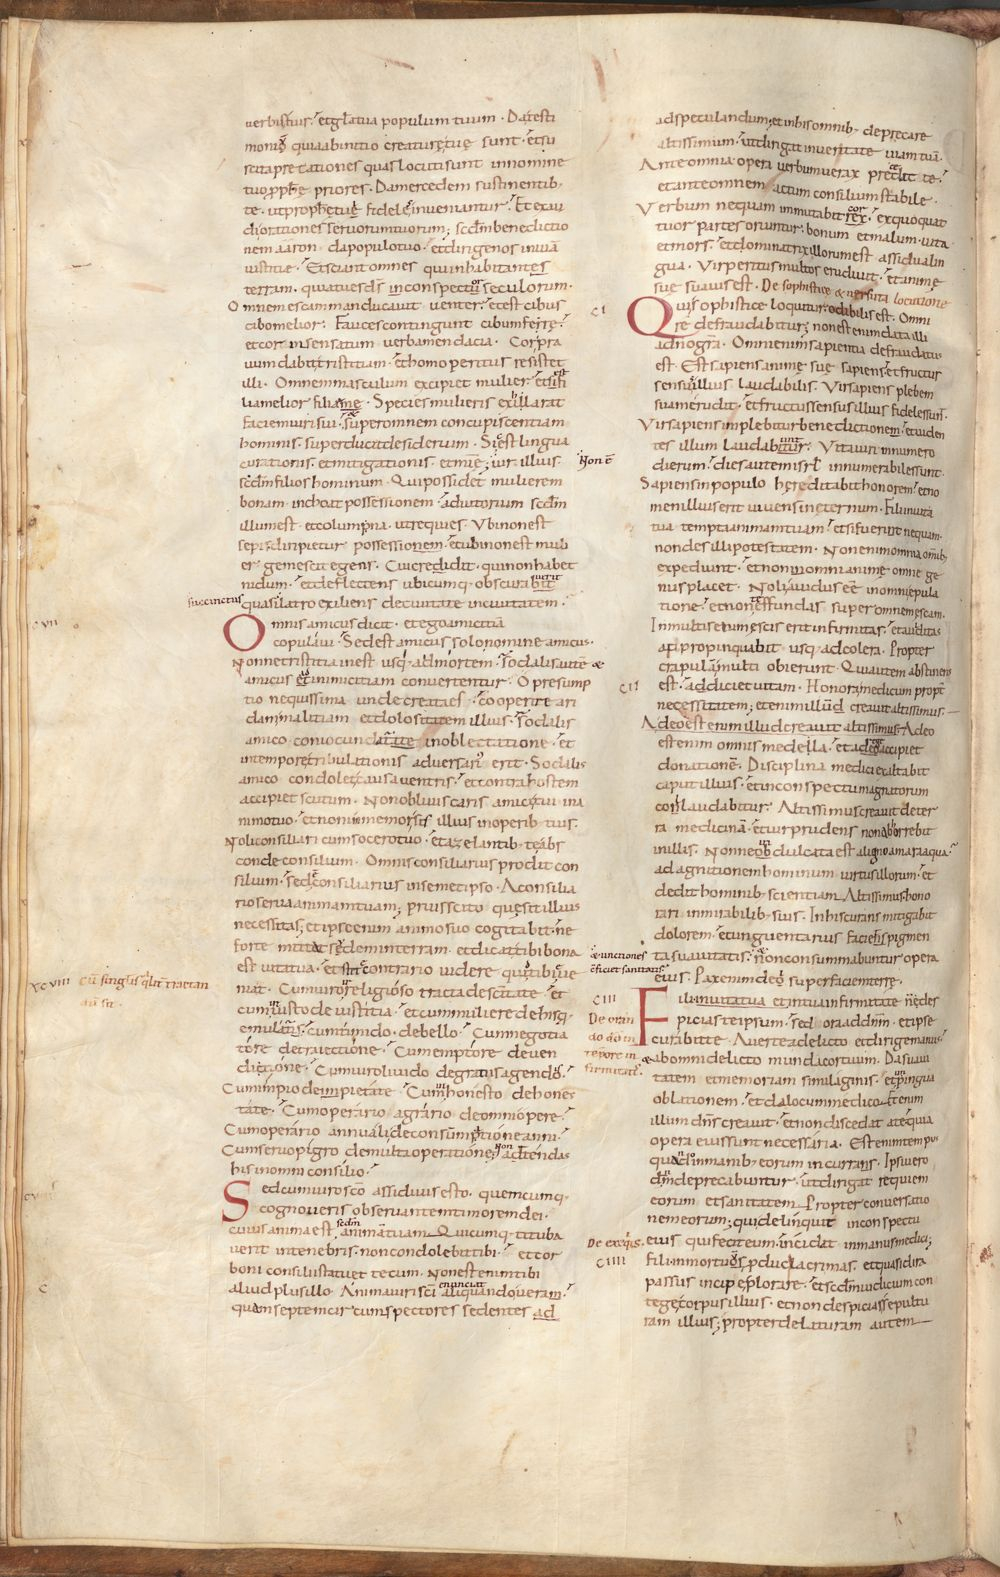 uerbis tuis. et głam tuam populum tuum. Da testi
moniū quia ab initio creaturę tuę sunt. et su
scita precationes quas locuti sunt in nomine
tuo pphę priores. Da mercedem sustinentib;
te. ut prophetę tuę fideles inueniantur. Et exau
di orationes seruorum tuorum; scdm benedictio
nem aaron. da populo tuo. et dirige nos in uiā
iustitię. Et sciant omnes qui inhabitant
terram. quia tu es ds̄ inconspector seculorum.
Omnem escam manducauit uenter. et est cibus
cibo melior. Fauces contingunt cibum ferę.
et cor insensatum uerba mendacia. Cor pra
uum dabit tristitiam. et homo peritus resistet
illi. Omnem masculum excipiet mulier. et est fi
lia melior filia. Species mulieris exillarat
faciem uiri sui. super omnem concupiscentiam
hominis. superducit desiderium. Si est lingua
curationis. et mitigationis. et mię; uir illius.
Non ē
scdm filios hominum. Qui possidet mulierem
bonam. inchoat possessionem. adiutorium scdm
illum est. et columpna. ut requies. Ubi non est
sepis diripietur possessionem. et ubi non est muli
er gemescit egens. Cui credidit. qui non habet
nidum. et deflectens ubicumq; obscurabit
succinctus
quasi latro exiliens de ciuitate in ciuitatem.
Omnis amicus dicit. et ego amicitiā
copulaui. Sed est amicus solo nomine amicus.
Nonne tristitia inest usq; ad mortem. Sodalis autē &
amicus et inimicitiam conuertentur. O presump
tio nequissima unde creata es. cooperire ari
da malitiam et dolositatem illius. Sodalis
amico coniocundatate in oblectatione. et
in tempore tribulationis aduersari erit. Sodalis
amico condolet causa uentris. et contra hostem
accipiet scutum. Non obliuiscaris amici tui in a
nimo tuo. et non inmemor sis illius in operib; tuis.
Noli consiliari cum socero tuo. et a zelantib; te abs
conde consilium. Omnis consiliarius prodit con
silium. sed ē consiliarius in semetipso. A consilia
rio serua animam tuam; prius scito quę sit illius
necessitas; et ipse enim animo suo cogitabit. ne
forte mittat sudem in terram. et dicat tibi bona
est uita tua. et stet e contrario uidere quid tibi eue
niat. Cum uiro inreligioso tracta de scitate. et
XCVIII Cū singłis qłit̄ tractan
dū sit
cum iniusto de iustitia. et cum muliere de his q;
emulatur. cum timido. de bello. Cum negotia
tore de traiectione. Cum emptore de uen
ditione. Cum uiro liuido de gratiis agendis.
Cum impio de impietate. Cum inhonesto de hones
tate. Cum operario agrario de omni opere.
Cum operario annuali de consummatione anni.
Cum seruo pigro de multa operatione; non adtendas
his in omni consilio.
Sed cum uiro sco assiduus esto. quemcumq;
cognoueris obseruantem timorem dei.
cuius anima est scdm animam tuam. Quicumq; tituba
uerit in tenebris. non condolebit tibi. et cor
boni consilii statuet tecum. Non est enim tibi
aliud plus illo. Anima uiri sci enunciat aliquando ueram.
quam septem circumspectores sedentes ad
ad speculandum; et in his omnib; deprecare
altissimum. ut dirigat in ueritate uiam tuā.
Ante omnia opera uerbum uerax precedat te.
et ante omnem actum consilium stabile.
Uerbum nequam inmutabit cor. ex quo quat
tuor partes oriuntur. bonum et malum. uita
et mors. et dominatrix illorum est assidua lin
gua. Uir peritus multos erudiuit. et anime
suę suauis est. De sophistice & uersuta locutione
CI
Qui sophistice loquitur. odibilis est. Omni
re defraudabitur; non est enim data illi
a dn̄o gra. Omni enim sapientia defraudatus
est. Est sapiens animę suę sapiens. et fructus
sensus illius laudabilis. Uir sapiens plebem
suam erudit. et fructus sensus illius fideles sunt.
Uir sapiens implebitur benedictionem. et uiden
tes illum laudabunt. Uita uiri in numero
dierum. dies autem isrł innumerabiles sunt.
Sapiens in populo hereditabit honorem. et no
men illius erit uiuens in ęternum. Fili in uita
tua tempta animam tuam. et si fuerit nequam.
non des illi potestatem. Non enim omnia omnib;
expediunt. et non omni animę omne ge
nus placet. Noli auidus eē in omni epula
tione. et non te effundas super omnem escam.
In multis enim escis erit infirmitas. et auiditas
appropinquabit usq; ad colera. Propter
crapulam multi obierunt. Qui autem abstinens
CII
est. addiciet uitam. Honora medicum propt̄
necessitatem; etenim illud creauit altissimus.
A deo est enim illud creauit altissimus. A deo
est enim omnis medella. et a rege accipiet
donationē. Disciplina medici exaltabit
caput illius. et in conspectu magnatorum
conlaudabitur. Altissimus creauit de ter
ra medicinā. et uir prudens non abhorrebit
in illis. Nonne ob dulcata est a ligno amara aqua.
ad agnitionem hominum uirtus illorum. et
dedit hominib; scientiam. Altissimus hono
rari in mirabilib; suis. In his curans mitigabit
dolorem. et unguentarius faciens pigmen
ta suauitatis. & unctiones
efficiet sanitatis. et non consummabuntur opera
eius. Pax enim dei super faciem terrę.
CIII
De oran
do dō in
tēpore in
firmitatē.
Fili in uita tua et in tua infirmitate ne des
picias te ipsum. sed ora ad dn̄m. et ipse
curabit te. Auerte a delicto et dirige manus.
& ab omni delicto munda cor tuum. Da suaui
tatem et memoriam similaginis. et inpingua
oblationem. et da locum medico. Etenim
illum dn̄s creauit. et non discedat a te. quia
opera eius sunt necessaria. Est enim tempus
quando in manib; eorum incurras. Ipsi uero
dn̄m deprecabuntur. ut dirigat requiem
eorum et sanitatem. Propter conuersatio
nem eorum; qui delinquit in conspectu
De exeq̇is.
CIIII
eius qui fecit eum. incidat in manus medici;
Fili in mortuos produc lacrimas. et quasi dira
passus incipe plorare. et scdm iudicium con
tege corpus illius. et non despicias sepultu
ram illius; propter delaturam autem
CVII
C